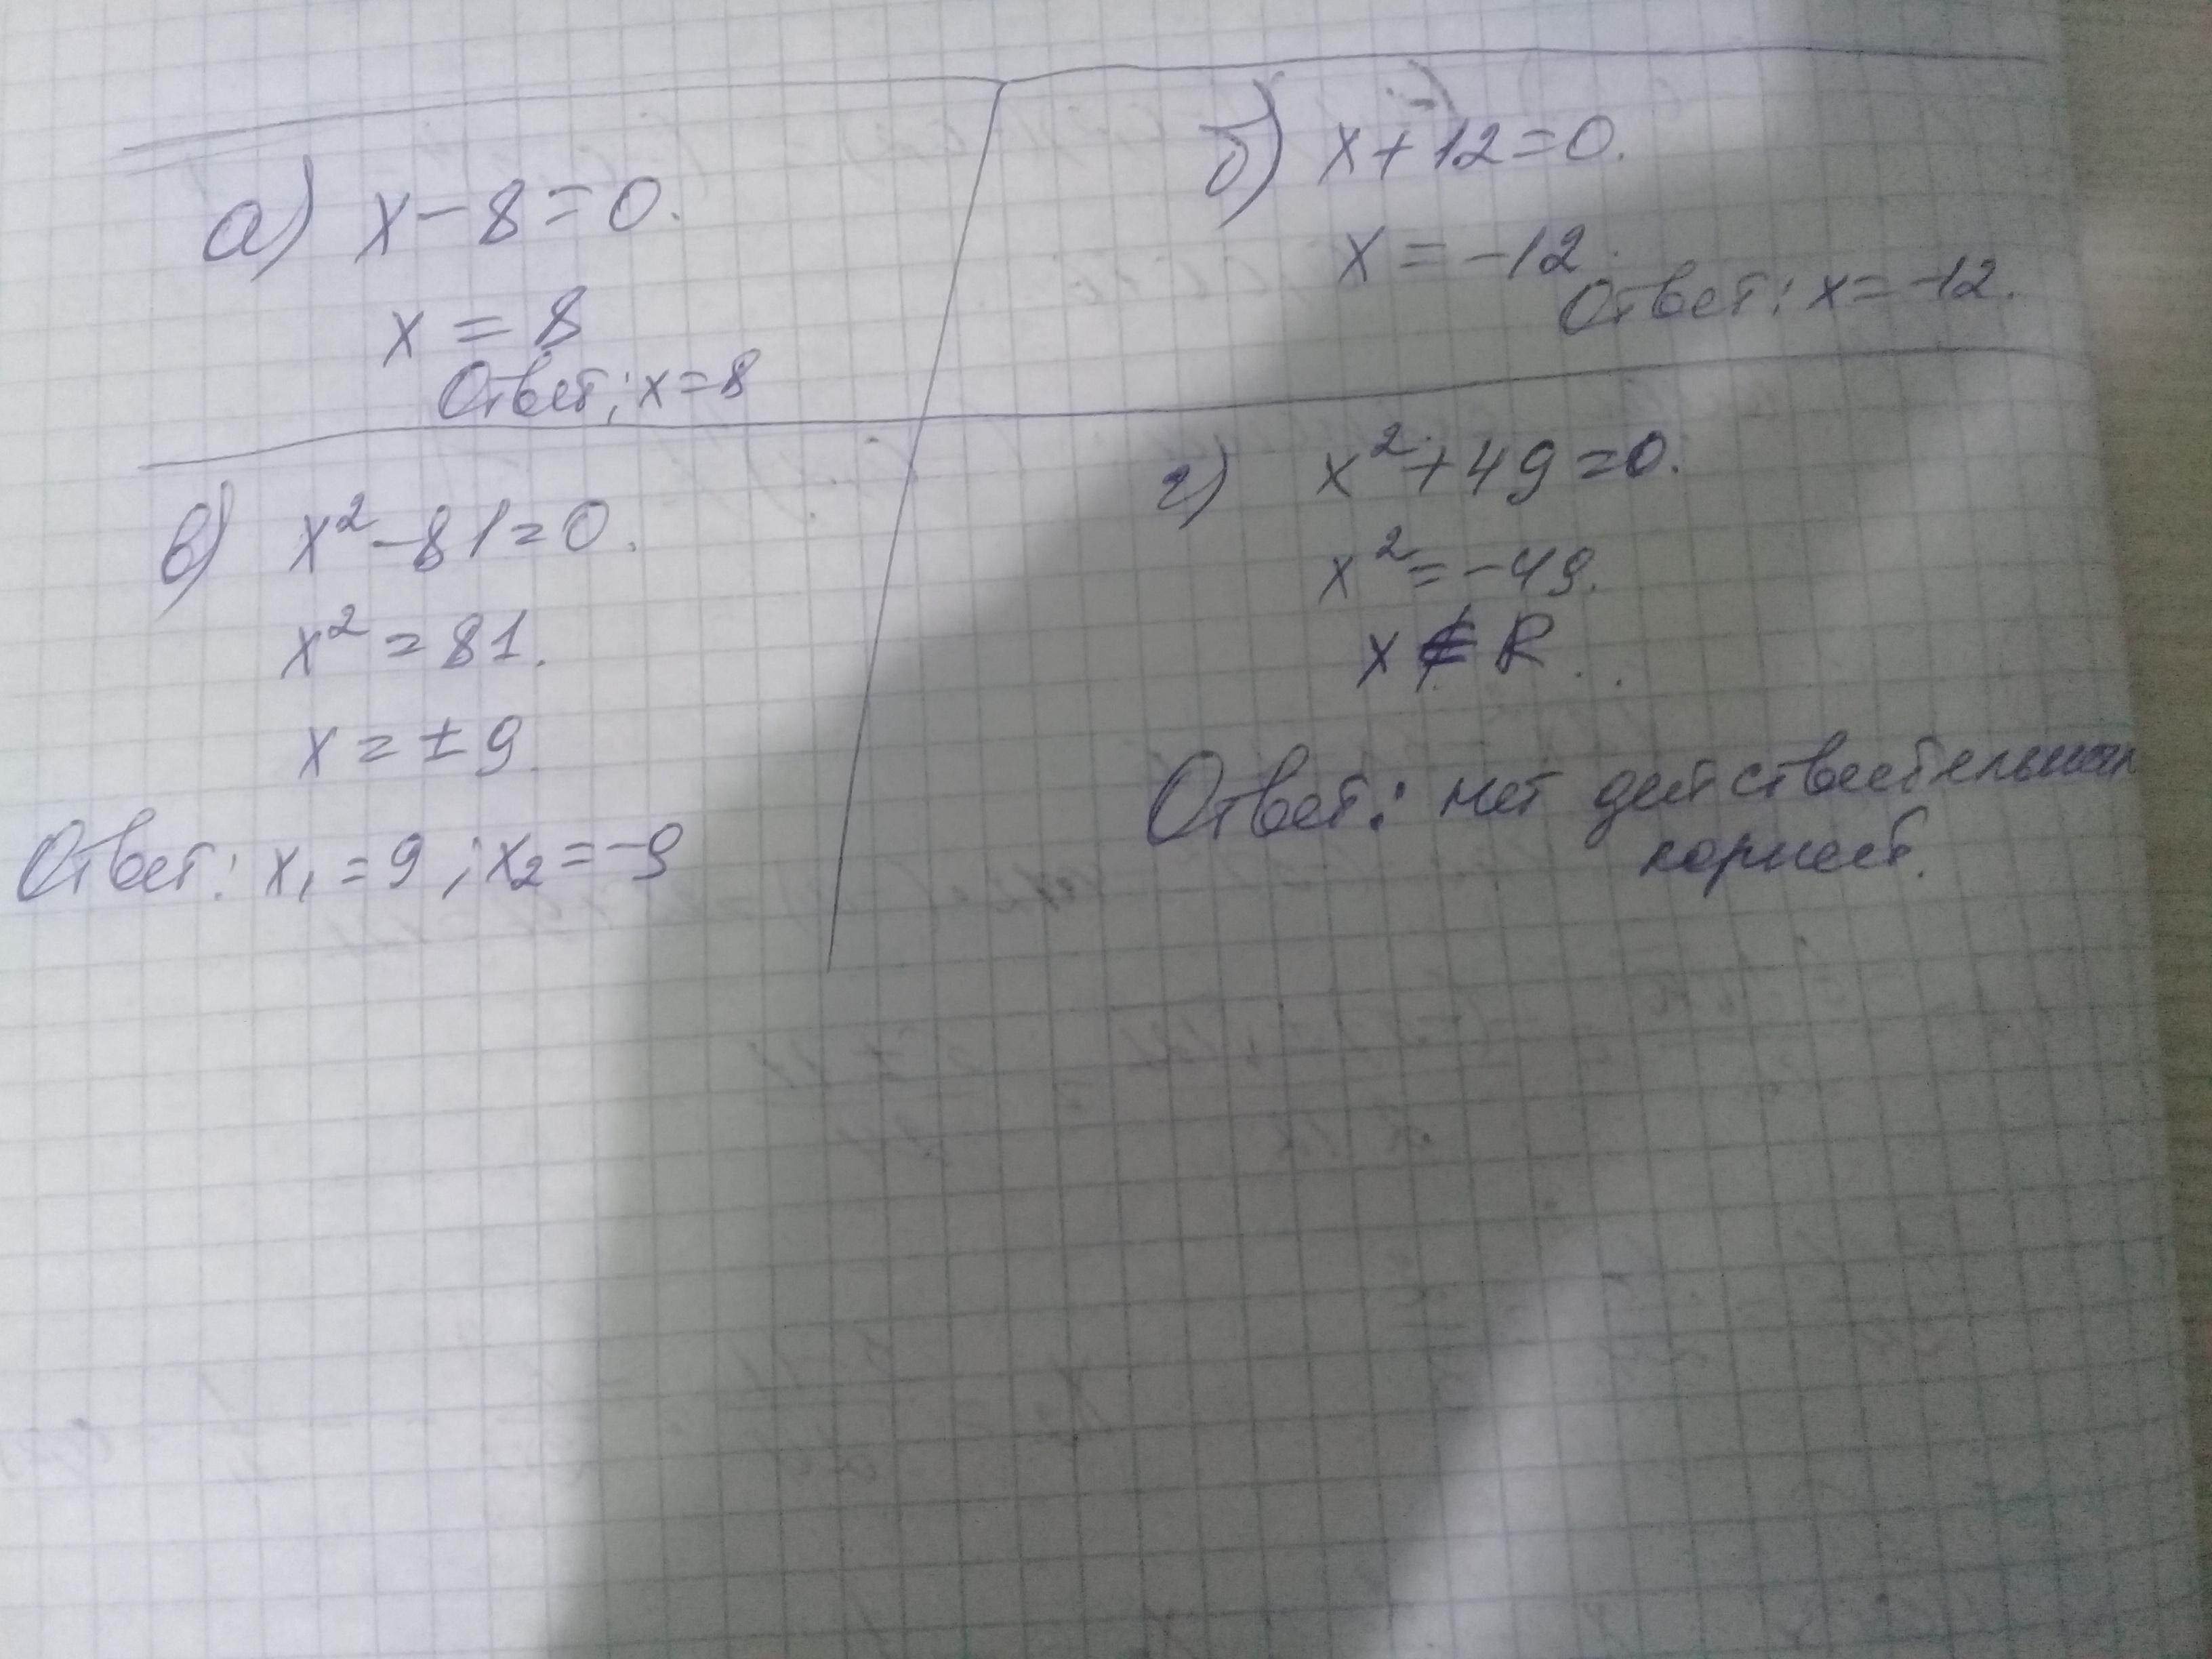 а) x-8=0.
x = 8
Ответ: x=8
б) x+12=0.
x = -12.
Ответ: x=-12.
в) x²-81=0.
x²=81.
x=±9.
Ответ: x₁=9; x₂=-9
г) x²+49=0.
x²=-49.
x ∉ R.
Ответ: нет действительных
корней.